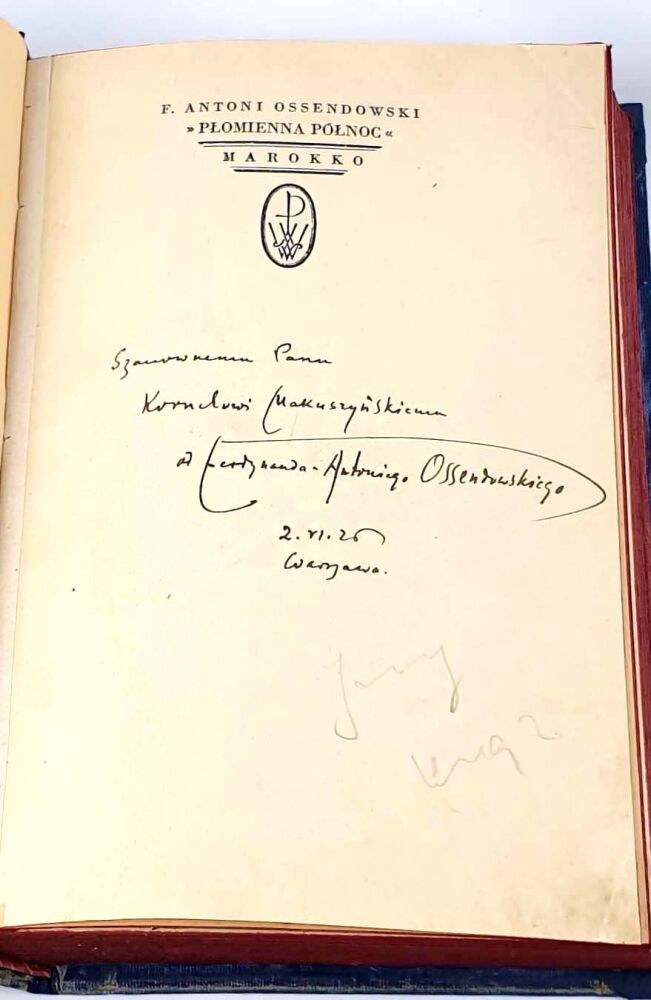 F. ANTONI OSSENDOWSKI
» PŁOMIENNA PÓŁNOC «
MAROKKO
Szanownemu Panu
Kornelowi Makuszyńskiemu
od Ferdynanda-Antoniego Ossendowskiego
2.VI.26
Warszawa.